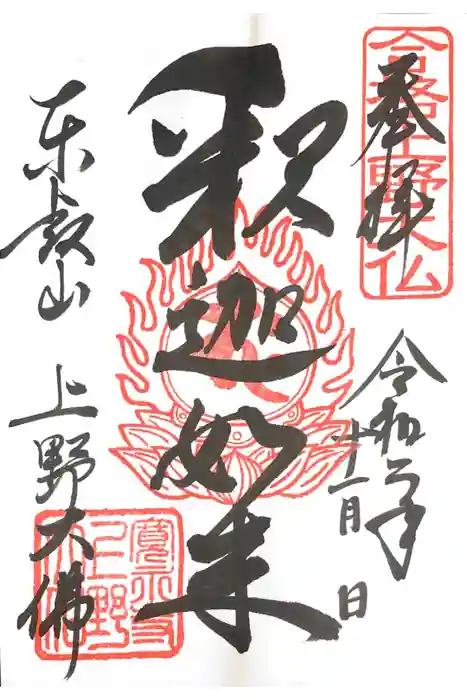 合格上野大仏
奉拝
令和 年
十一月 日
釈迦如来
東叡山 上野大佛
寛永寺
上野
大佛